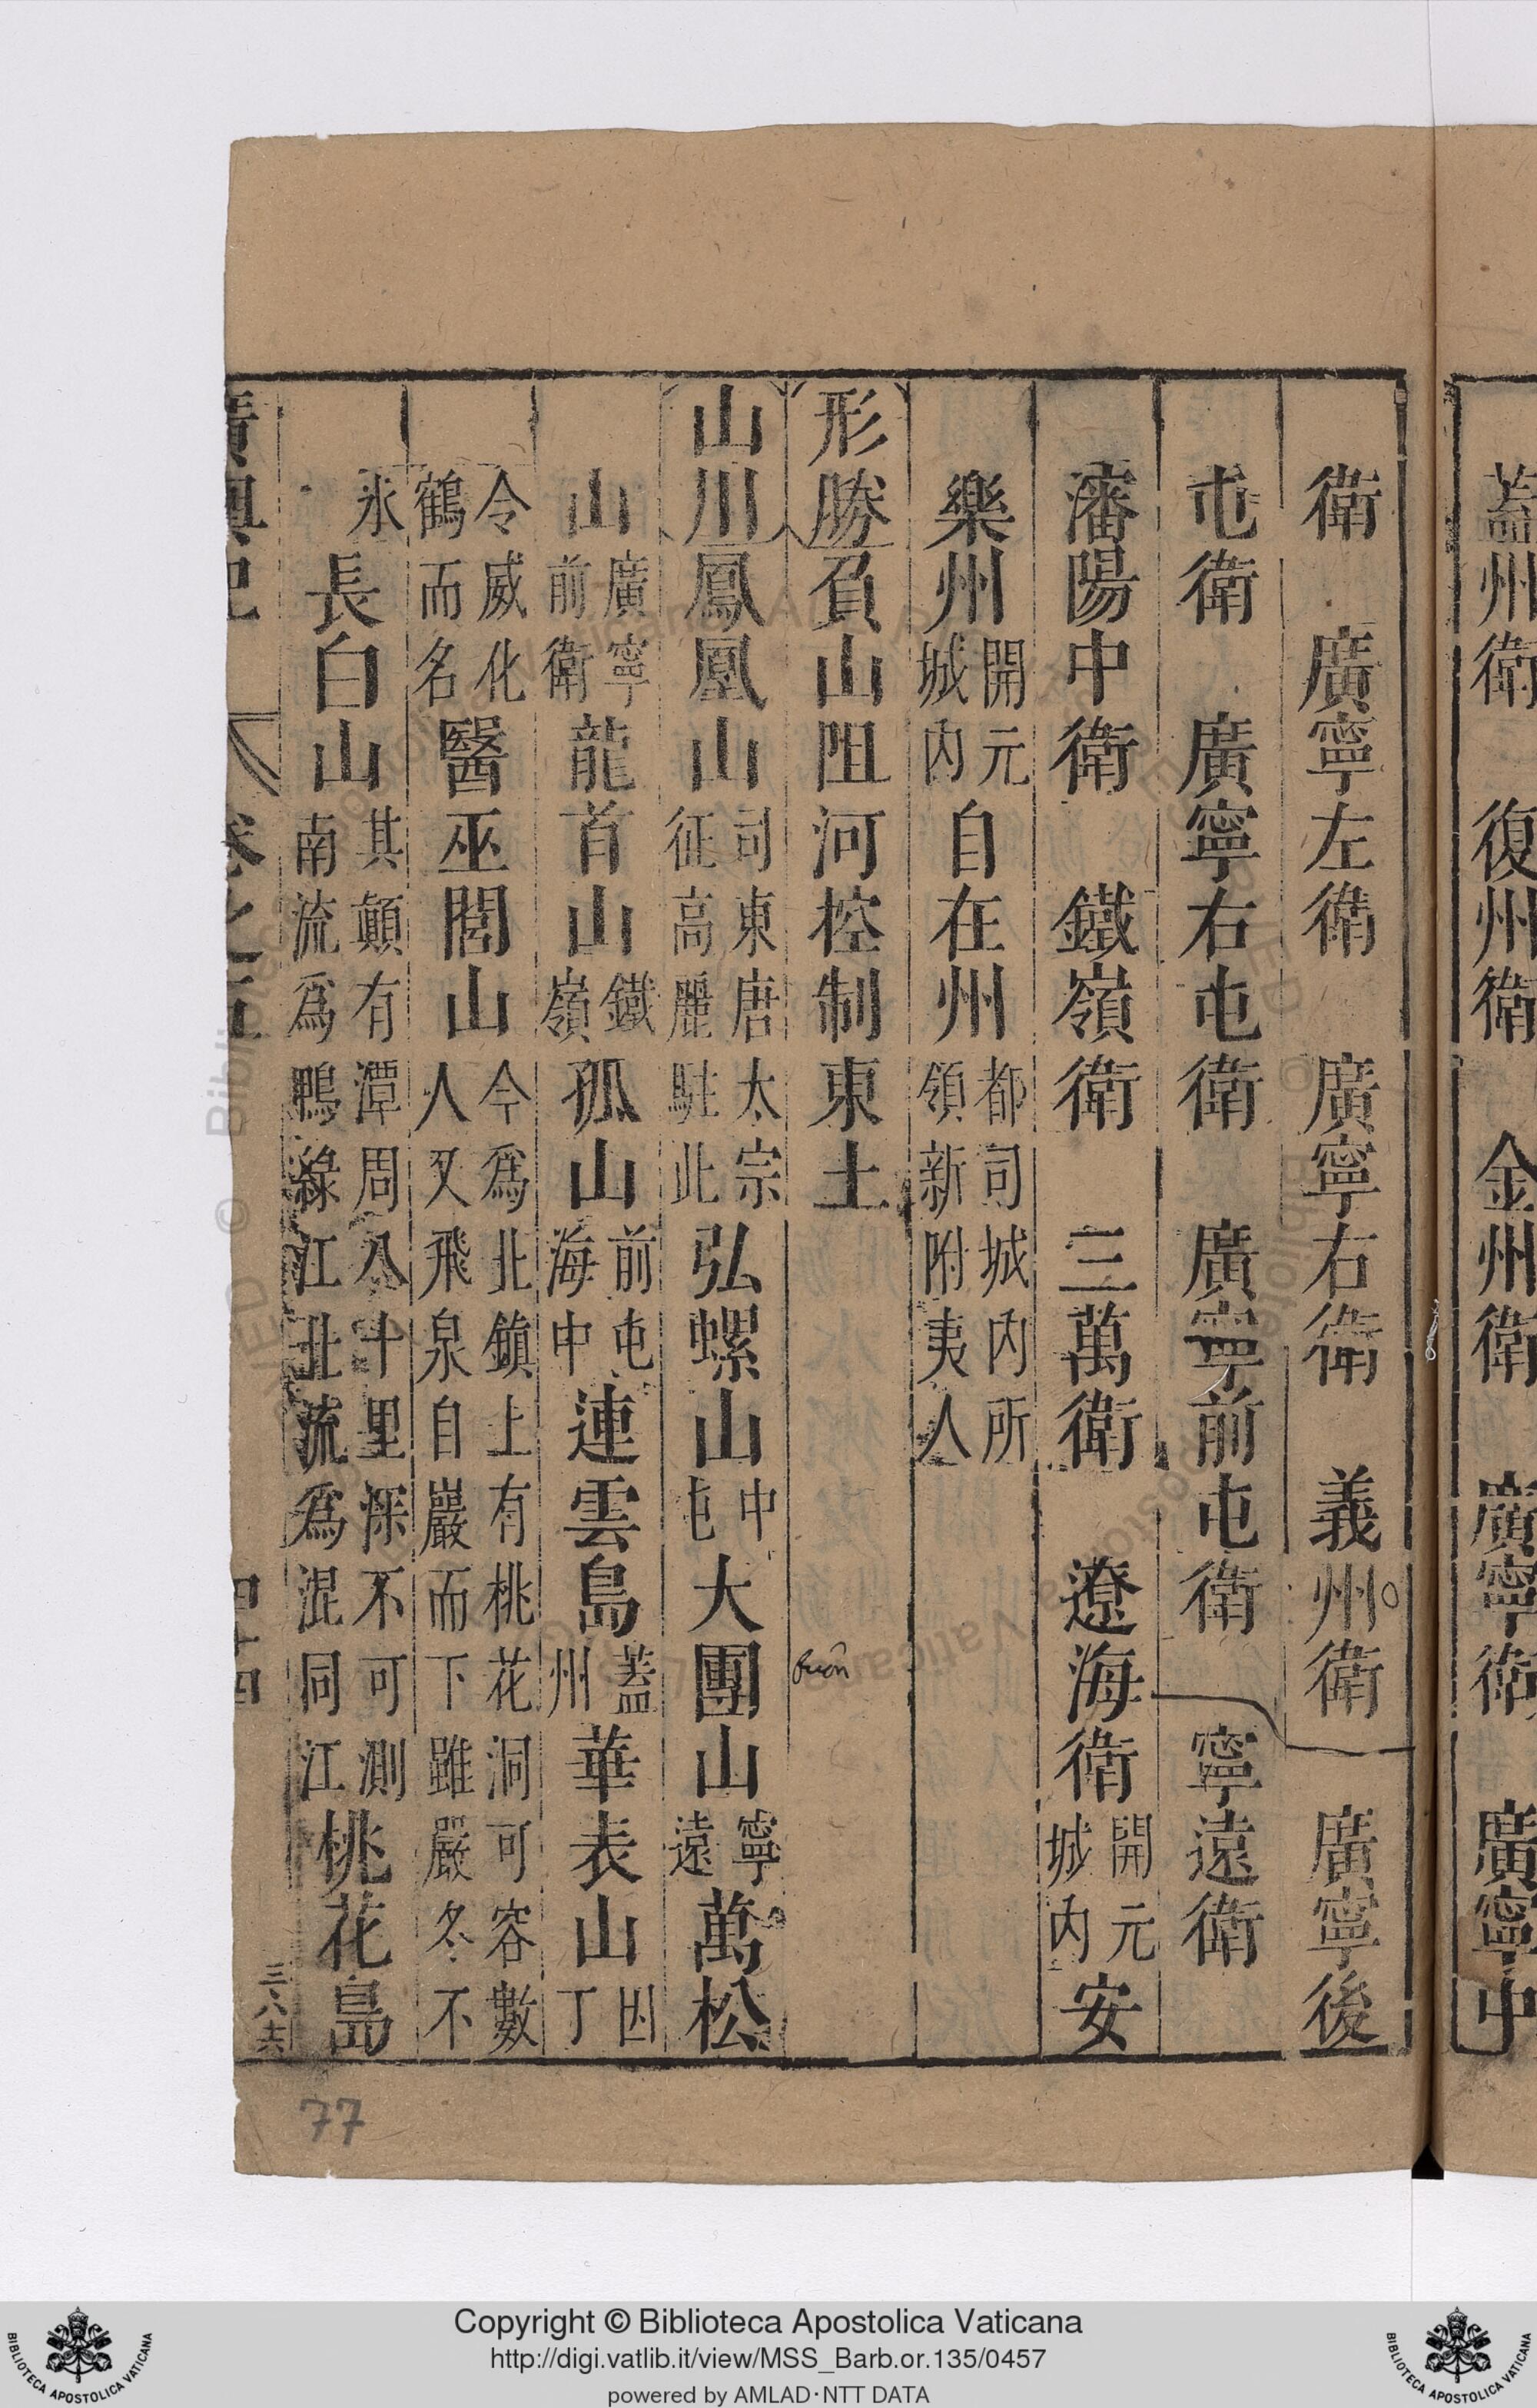 蓋州衛　復州衛　金州衛　廣寧衛　廣寧中
衛　廣寧左衛　廣寧右衛　義州衛　廣寧後
屯衛　廣寧右屯衛　廣寧前屯衛　寧遠衛
瀋陽中衛　鐵嶺衛　三萬衛　遼海衛開元城內安
樂州開元城内自在州都司城内所領新附夷人
形勝負山阻河控制東土
山川鳳凰山司東唐太宗征高麗駐此弘螺山中屯大團山寧遠萬松
山廣寧前衛龍首山鐵嶺孤山前屯海中連雲島蓋州華表山因丁
令威化鶴而名醫巫閭山今為北鎮上有桃花洞可容數人又飛泉自巖而下雖嚴冬不
氷長白山其顛有潭周八十里深不可測南流爲鴨綠江北流爲混同江桃花島
廣輿記　卷之五　四十四
三八六
77
Copyright © Biblioteca Apostolica Vaticana
http://digi.vatlib.it/view/MSS_Barb.or.135/0457
powered by AMLAD·NTT DATA
BIBLIOTECA APOSTOLICA VATICANA
BIBLIOTECA APOSTOLICA VATICANA